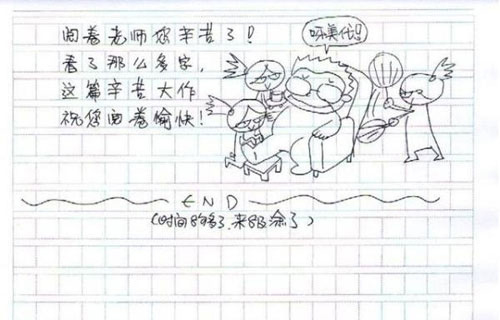 阅卷老师您辛苦了!
看了那么多字,
这篇辛苦大作
祝您阅卷愉快!
呀美代!
END
(时间不够了,来不及涂了)